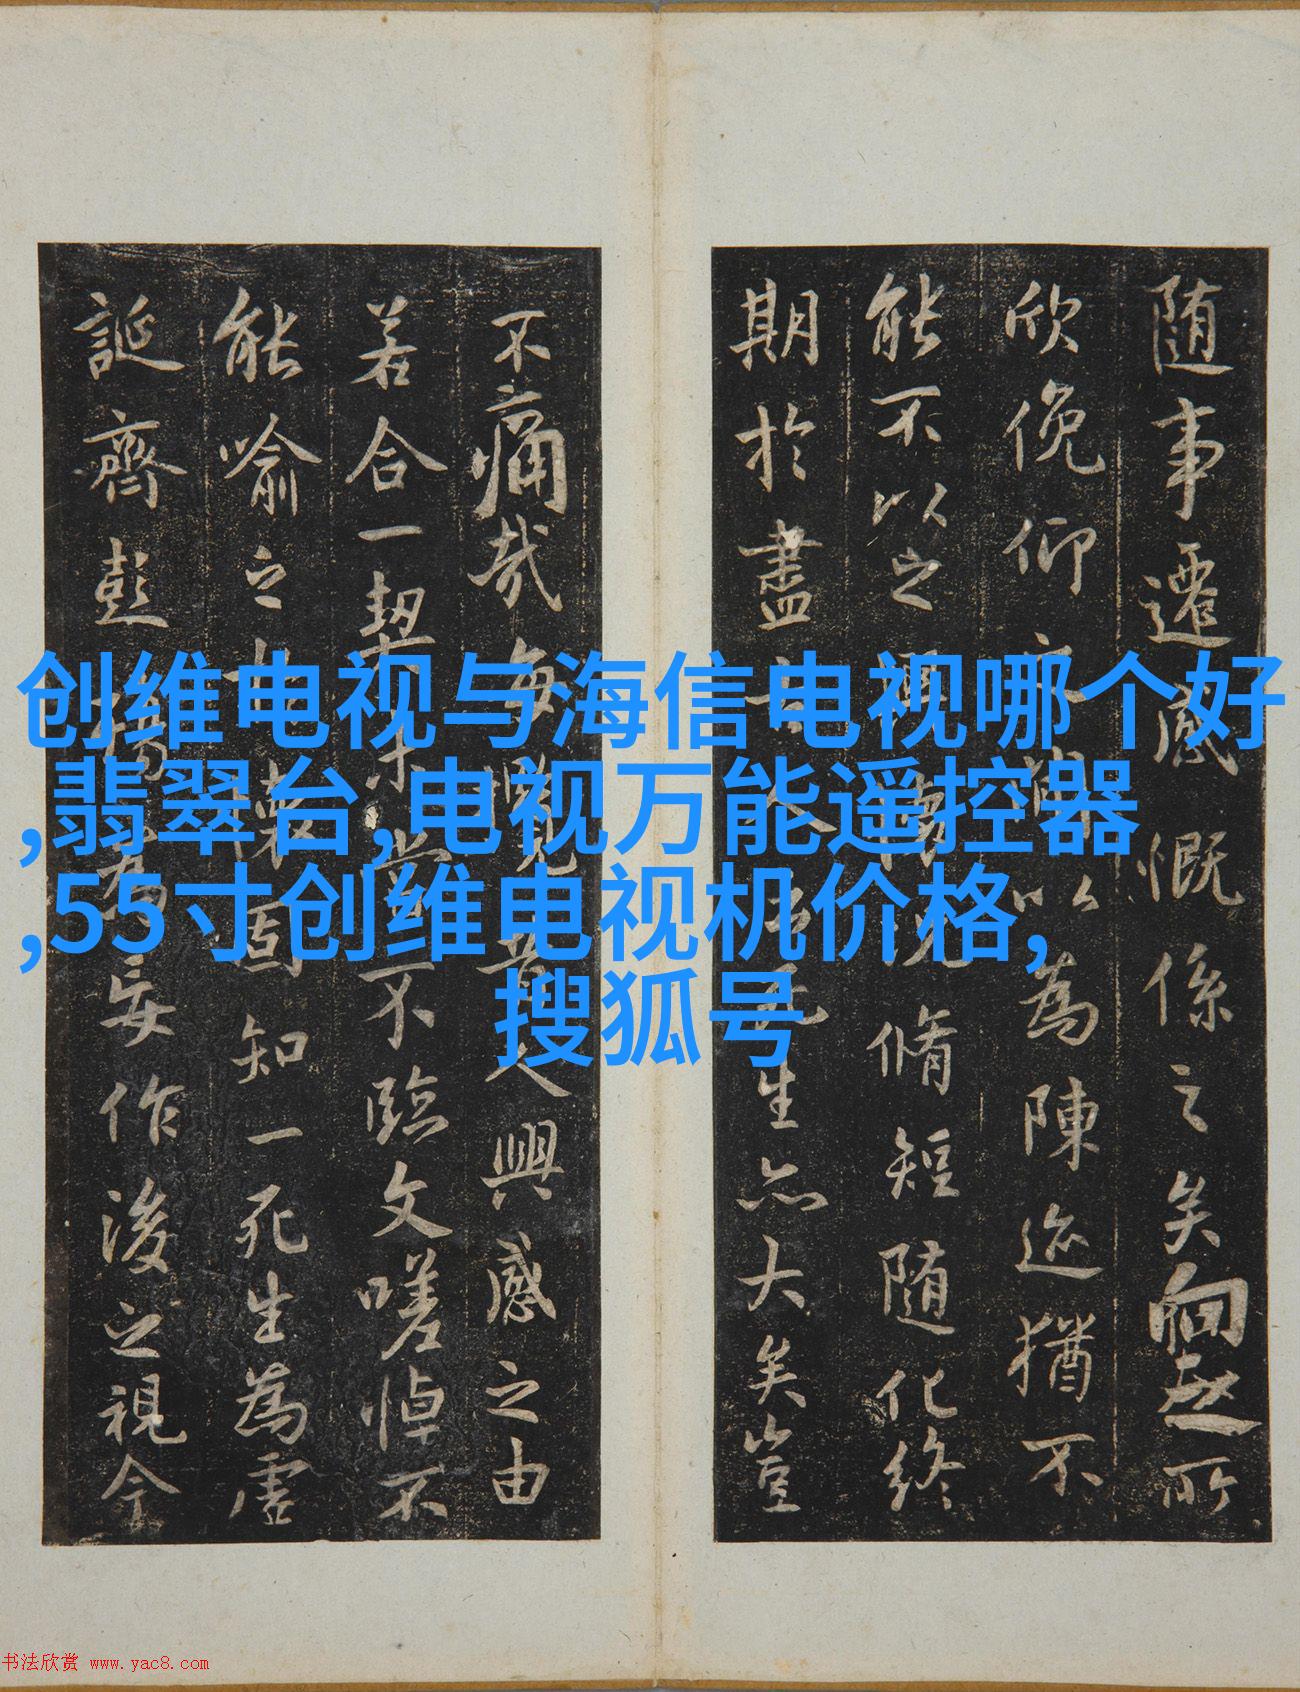 随事遷感慨係之矣向之所
欣俛仰之間以為陳迹猶不
能不以之興懷況脩短随化終
期於盡古人云死生亦大矣豈
不痛哉每攬昔人興感之由
若合一契未嘗不臨文嗟悼不
能喻之於懷固知一死生為虛
誕齊彭殤為妄作後之視今
创维电视与海信电视哪个好
,翡翠台,电视万能遥控器
,55寸创维电视机价格,
搜狐号
书法欣赏 www.yac8.com